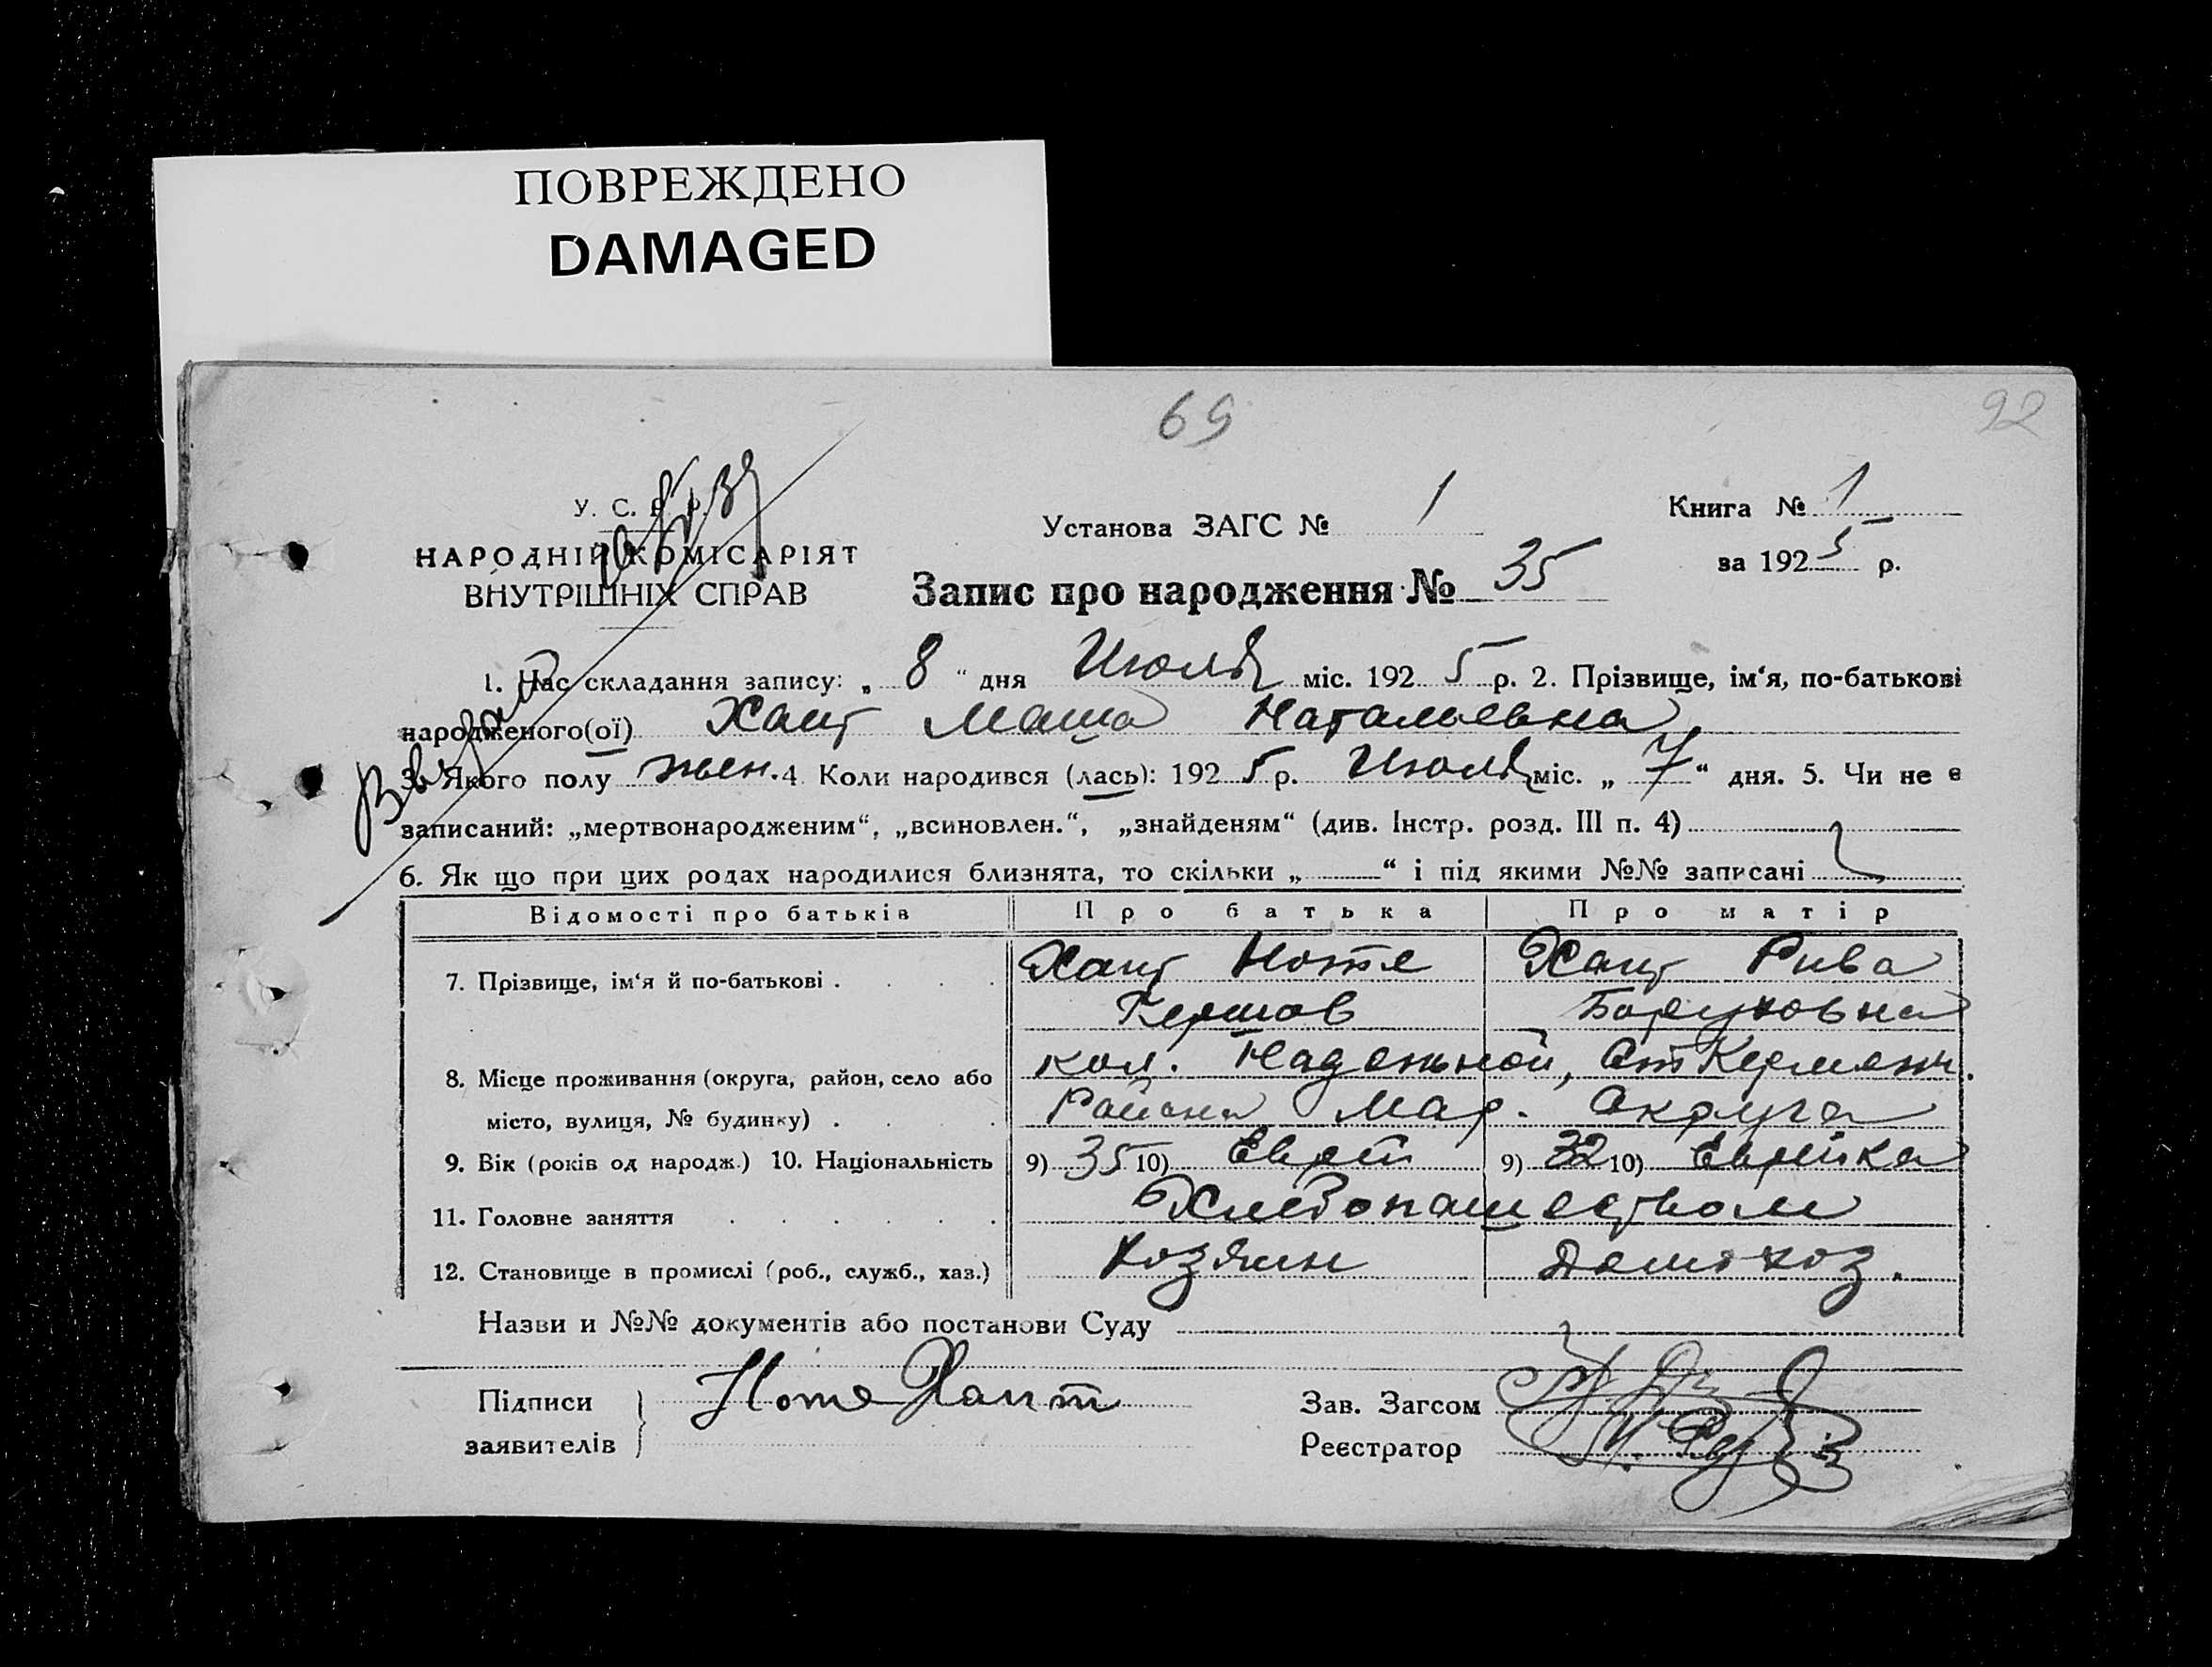 ПОВРЕЖДЕНО
DAMAGED
69
92
У. С. Р. Р.
НАРОДНІЙ КОМІСАРІЯТ
ВНУТРІШНІХ СПРАВ
Установа ЗАГС № 1
Книга № 1
за 1925 р.
Запис про народження № 35
1. Час складання запису: „ 8 “ дня Июля міс. 1925 р. 2. Прізвище, ім‘я, по-батькові
народженого(ої) Хант Маша Натальевна
3. Якого полу жен. 4 Коли народився (лась): 1925 р. Июля міс. „ 7 “ дня. 5. Чи не є
записаний: „мертвонародженим“, „всиновлен.“, „знайденям“ (див. Інстр. розд. III п. 4)
6. Як що при цих родах народилися близнята, то скільки „ “ і під якими №№ записані
Відомості про батьків Про батька Про матір
7. Прізвище, ім‘я й по-батькові . . . . Хант Ноте Хант Рива
Гершов Боруховна
8. Місце проживання (округа, район, село або кол. Надежной, Ст Керменч.
місто, вулиця, № будинку) . . . Района Мар. Округа
9. Вік (років од народж.) 10. Національність 9) 35 10) Еврей 9) 32 10) Еврейка
11. Головне заняття . . . . . . Хлебопашеством
12. Становище в промислі (роб., служб., хаз.) Хозяин Домохоз.
Назви и №№ документів або постанови Суду
Підписи Ноте Хант Зав. Загсом
заявителів Реєстратор